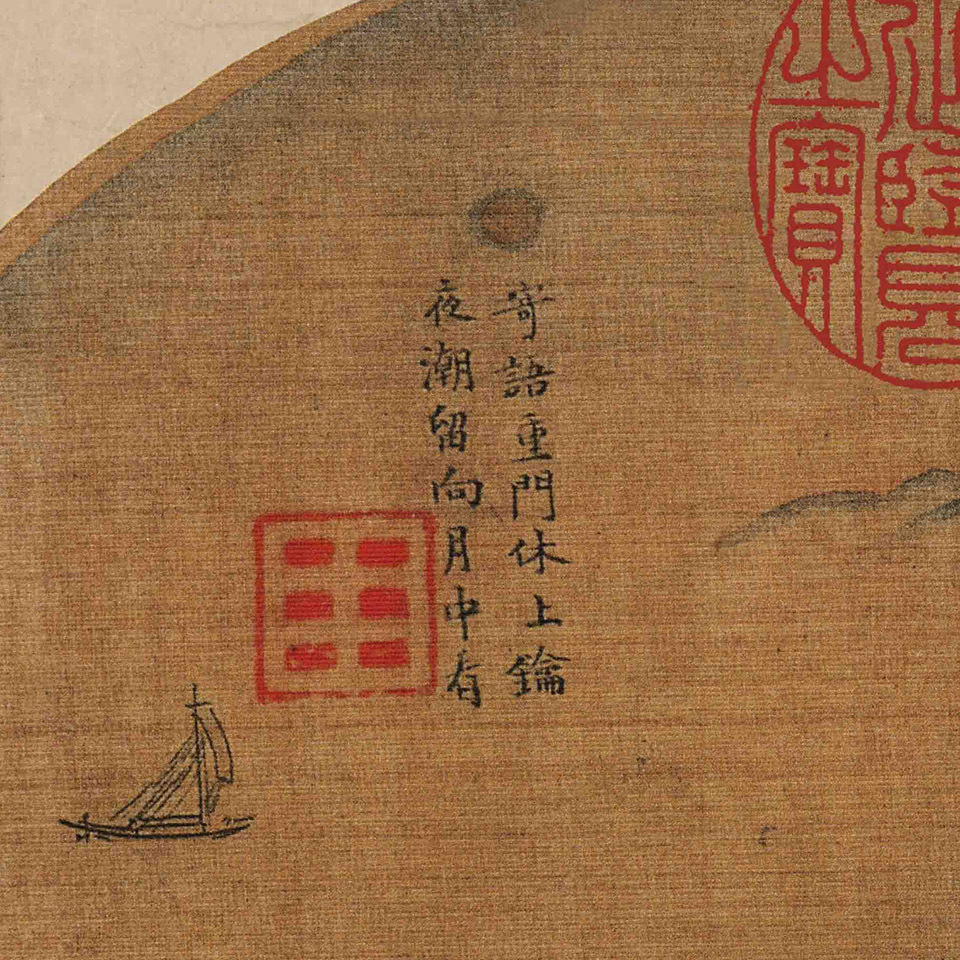 寄語重門休上鑰
夜潮留向月中看
之寶